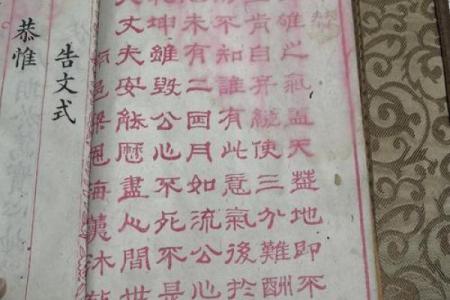 雄之氣蓋天蓋地即不
肯自弃縱使三分難酬
不知誰有此意氣後於
未有二回月如流公心
坤雖毀公心不死不是
丈夫安能歷盡人間世
邑梁冠海薰沐
告文式
恭惟